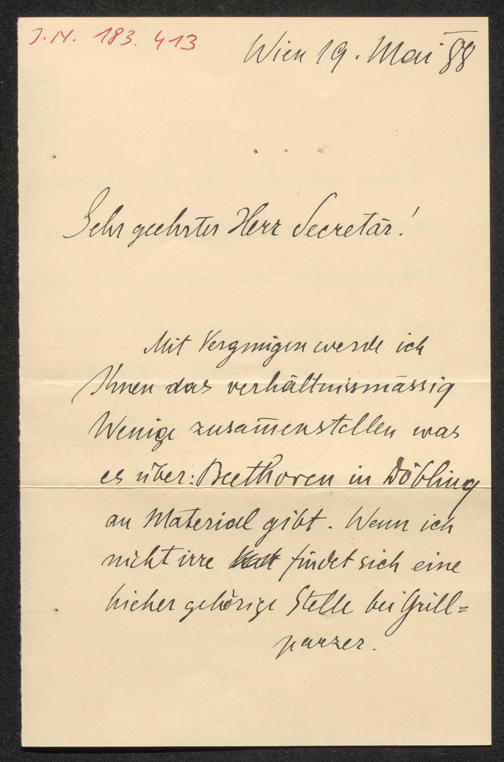 J.N. 183.413
Wien 19. Mai 88
Sehr geehrter Herr Secretär!
Mit Vergnügen werde ich
Ihnen das verhältnismässig
Wenige zusam̅enstellen was
es über: Beethoven in Döbling
an Material gibt. Wenn ich
nicht irre findet sich eine
hieher gehörige Stelle bei Grill=
parzer.